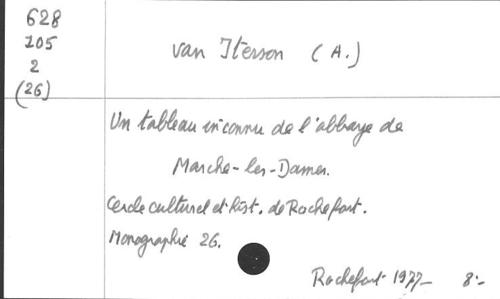 628
105
2
(26)
van Iterson (A.)
Un tableau inconnu de l'abbaye de
Marche-les-Dames.
Cercle culturel et hist. de Rochefort.
Monographie 26.
Rochefort 1977- 8:-